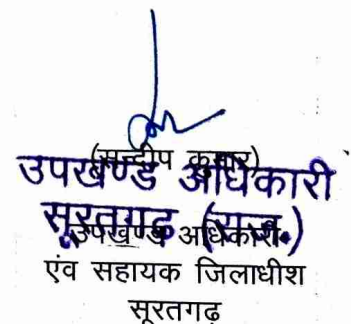 (सन्दीप कुमार)
उपखण्ड अधिकारी
सूरतगढ़ (राज.)
उपखण्ड अधिकारी
एंव सहायक जिलाधीश
सूरतगढ़